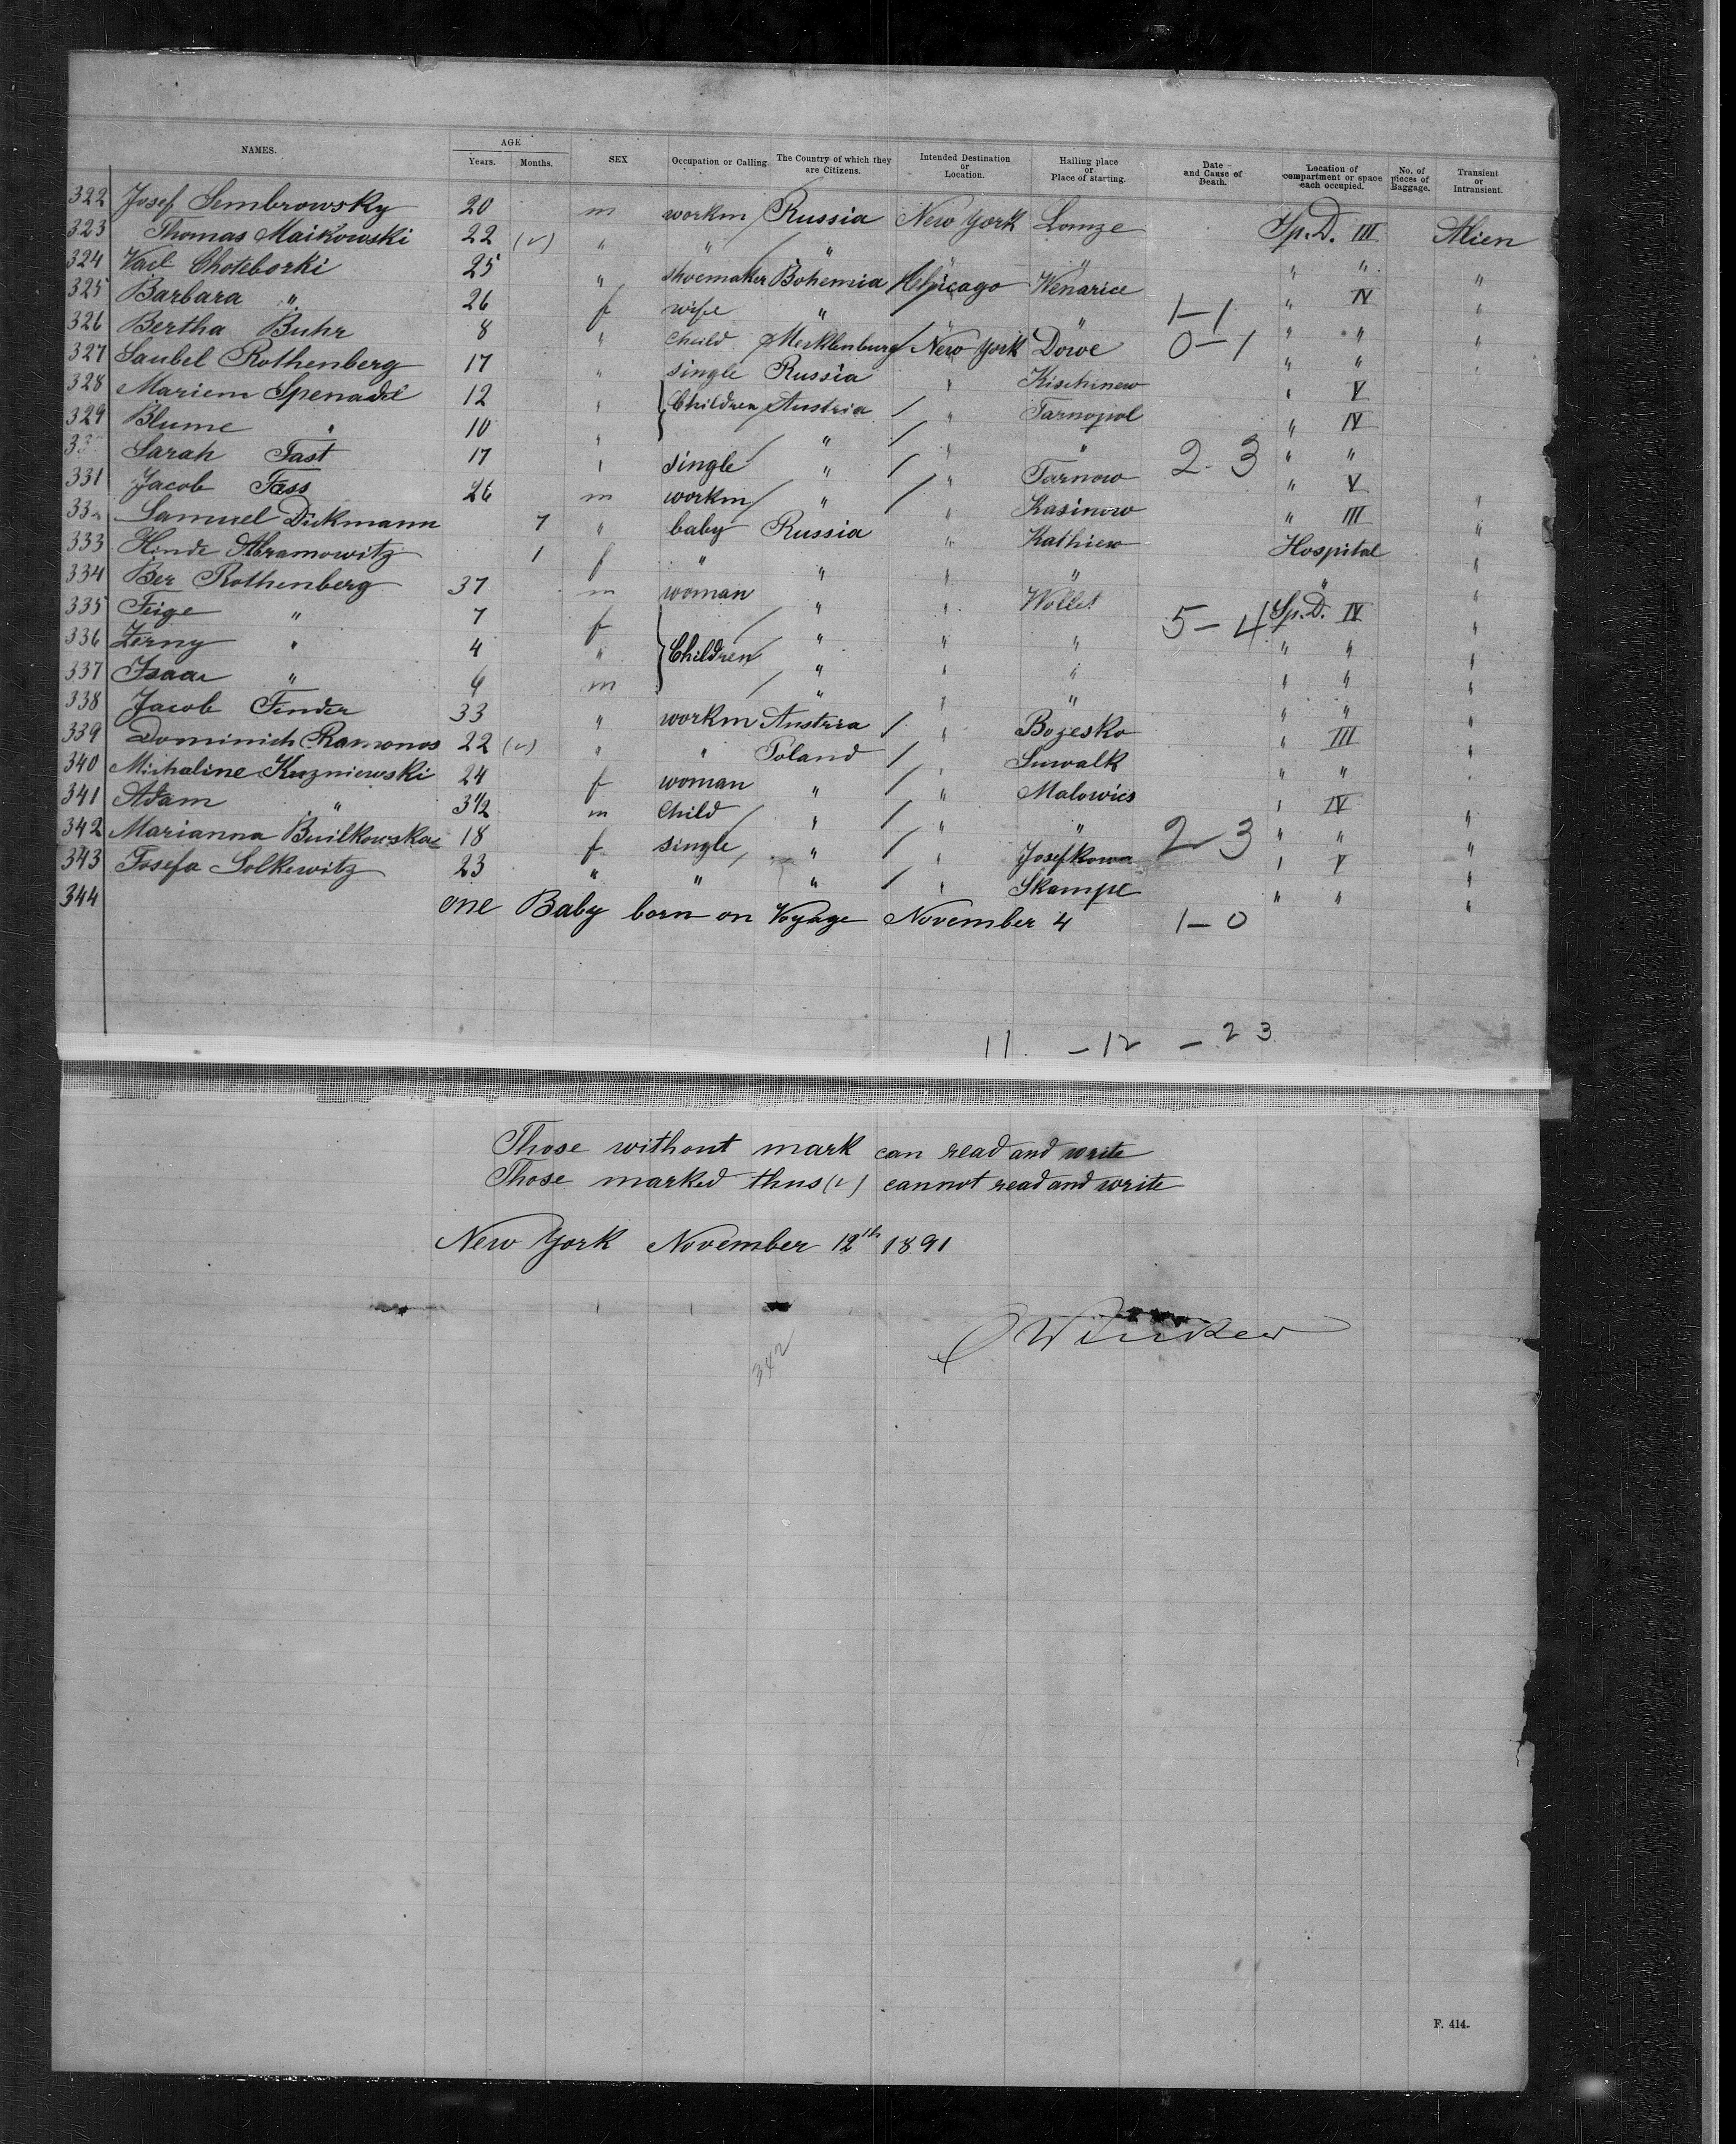 NAMES. AGE Years. Months. SEX Occupation or Calling. The Country of which they are Citizens. Intended Destination or Location. Hailing place or Place of starting. Date and Cause of Death. Location of compartment or space each occupied. No. of pieces of Baggage. Transient or Intransient.
322 Josef Sembrowsky 20 m workm Russia New York Lomze Sp.D. III Alien
323 Thomas Maikowski 22 (v) " " " " " " "
324 Choteborki 25 " shoemaker Bohemia Chicago Wenarice " IV "
325 Barbara " 26 f wife " " " 1-1 " " "
326 Bertha Buhr 8 " child Mecklenburg New York Dowe 0-1 " " "
327 Saubel Rothenberg 17 " single Russia " Kischinew " V
328 Mariem Spenadel 12 " Children Austria " Tarnopol " IV
329 Blume " 10 " " " " " "
33 Sarah Fast 17 " single " " Tarnow 2-3 " V "
331 Jacob Fass 26 m workm " " Kasinow " III "
33 Samuel Dickmann 7 " baby Russia " Kathiew Hospital "
333 Hinde Abramowitz 1 f " " " " " "
334 Ber Rothenberg 37 m woman " " Wollet Sp.D. IV "
335 Feige " 7 f " " " 5-4 " " "
336 Zerny " 4 " Children " " " " " "
337 Isaac " 4 m " " " " " "
338 Jacob Fender 33 " workm Austria " Bojesko " III "
339 Dominich Ramonos 22 (v) " " Poland " Suwalk " " "
340 Michaline Kuzniewski 24 f woman " " Malowics " IV "
341 Adam " 3 1/2 m Child " " " " " "
342 Marianna Builkowska 18 f single " " Josefkowa 2-3 " V "
343 Josefa Solkewitz 23 " " " " Skampe " " "
344 one Baby born on Voyage November 4 1-0
11. - 12 - 23
Those without mark can read and write
Those marked thus (v) cannot read and write
New York November 12th 1891
Winker
342
F. 414.